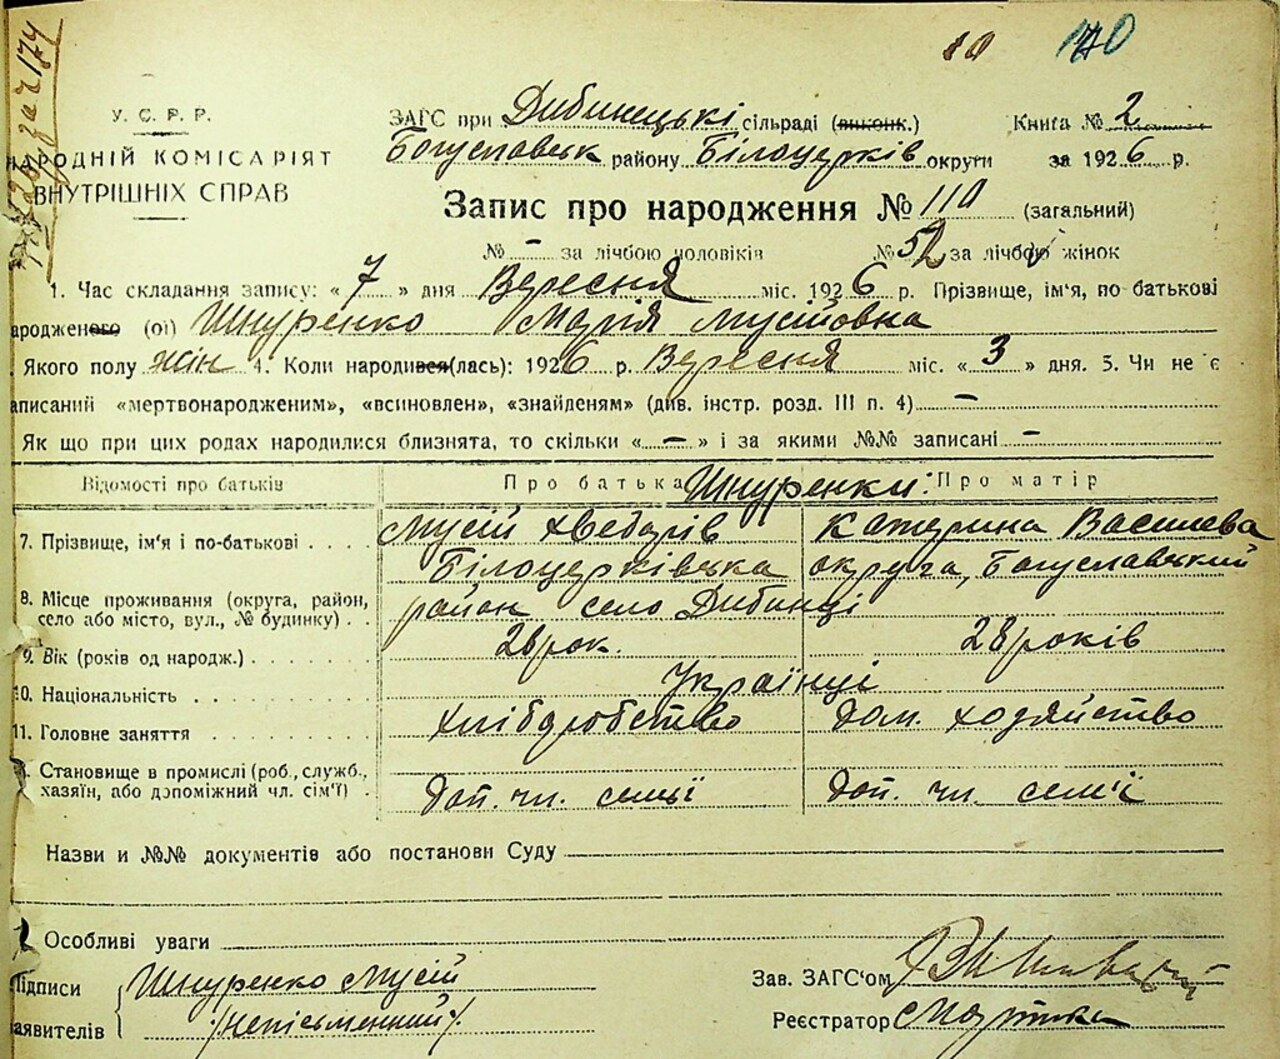 10 110
У. С. Р. Р.
НАРОДНІЙ КОМІСАРІЯТ
ВНУТРІШНІХ СПРАВ
ЗАГС при Дибинецькі сільраді (виконк.) Книга № 2
Богуславськ району Білоцерків округи за 1926 р.
Запис про народження № 110 (загальний)
№ - за лічбою чоловіків № 52 за лічбою жінок
1. Час складання запису: « 7 » дня Вересня міс. 1926 р. Прізвище, ім'я, по батькові
ародженого (ої) Шнуренко Марія Мусіовна
Якого полу жін 4. Коли народився(лась): 1926 р. Вересня міс. « 3 » дня. 5. Чи не є
аписаний «мертвонародженим», «всиновлен», «знайденям» (див. інстр. розд. III п. 4) -
Як що при цих родах народилися близнята, то скільки « - » і за якими №№ записані -
Відомості про батьків Про батька Шнуренки: Про матір
7. Прізвище, ім'я і по-батькові Мусій Хведорів Катерина Василева
8. Місце проживання (округа, район, село або місто, вул., № будинку) Білоцерківська округа, Богуславський
район село Дибинці
9. Вік (років од народж.) 28 рок. 28 років
10. Національність Українці
11. Головне заняття Хліборобство Дом. хозяйство
Становище в промислі (роб., служб.,
хазяїн, або допоміжний чл. сім'ї) Доп. чл. семьї Доп. чл. сем'ї
Назви и №№ документів або постанови Суду
Особливі уваги
Підписи Шнуренко Мусій Зав. ЗАГС'ом
заявителів /Неписьменний/ Реєстратор